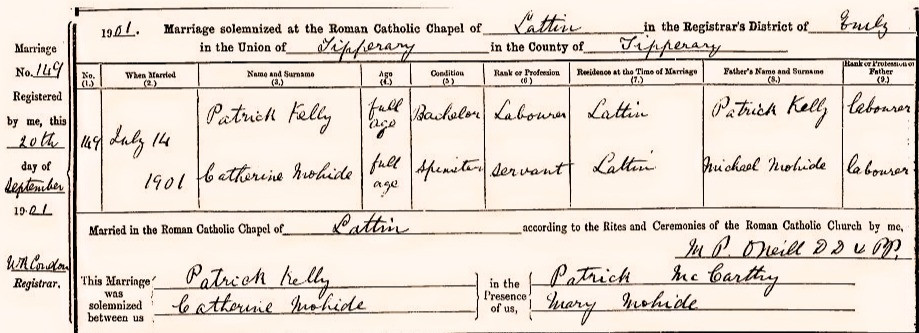 1901. Marriage solemnized at the Roman Catholic Chapel of Lattin in the Registrar's District of Emly
in the Union of Tipperary in the County of Tipperary
Marriage
No. 149
Registered
by me, this
20th
day of
September
1901
W R Condon
Registrar.
No. (1.) When Married (2.) Name and Surname (3.) Age (4.) Condition (5.) Rank or Profession (6.) Residence at the Time of Marriage (7.) Father's Name and Surname (8.) Rank or Profession of Father (9.)
149 July 14 1901 Patrick Kelly full age Bachelor Labourer Lattin Patrick Kelly labourer
Catherine Mohide full age spinster servant Lattin Michael Mohide labourer
Married in the Roman Catholic Chapel of Lattin according to the Rites and Ceremonies of the Roman Catholic Church by me,
M P. ONeill DD V PP.
This Marriage was solemnized between us
Patrick Kelly
Catherine Mohide
in the Presence of us,
Patrick Mc Carthy
Mary Mohide